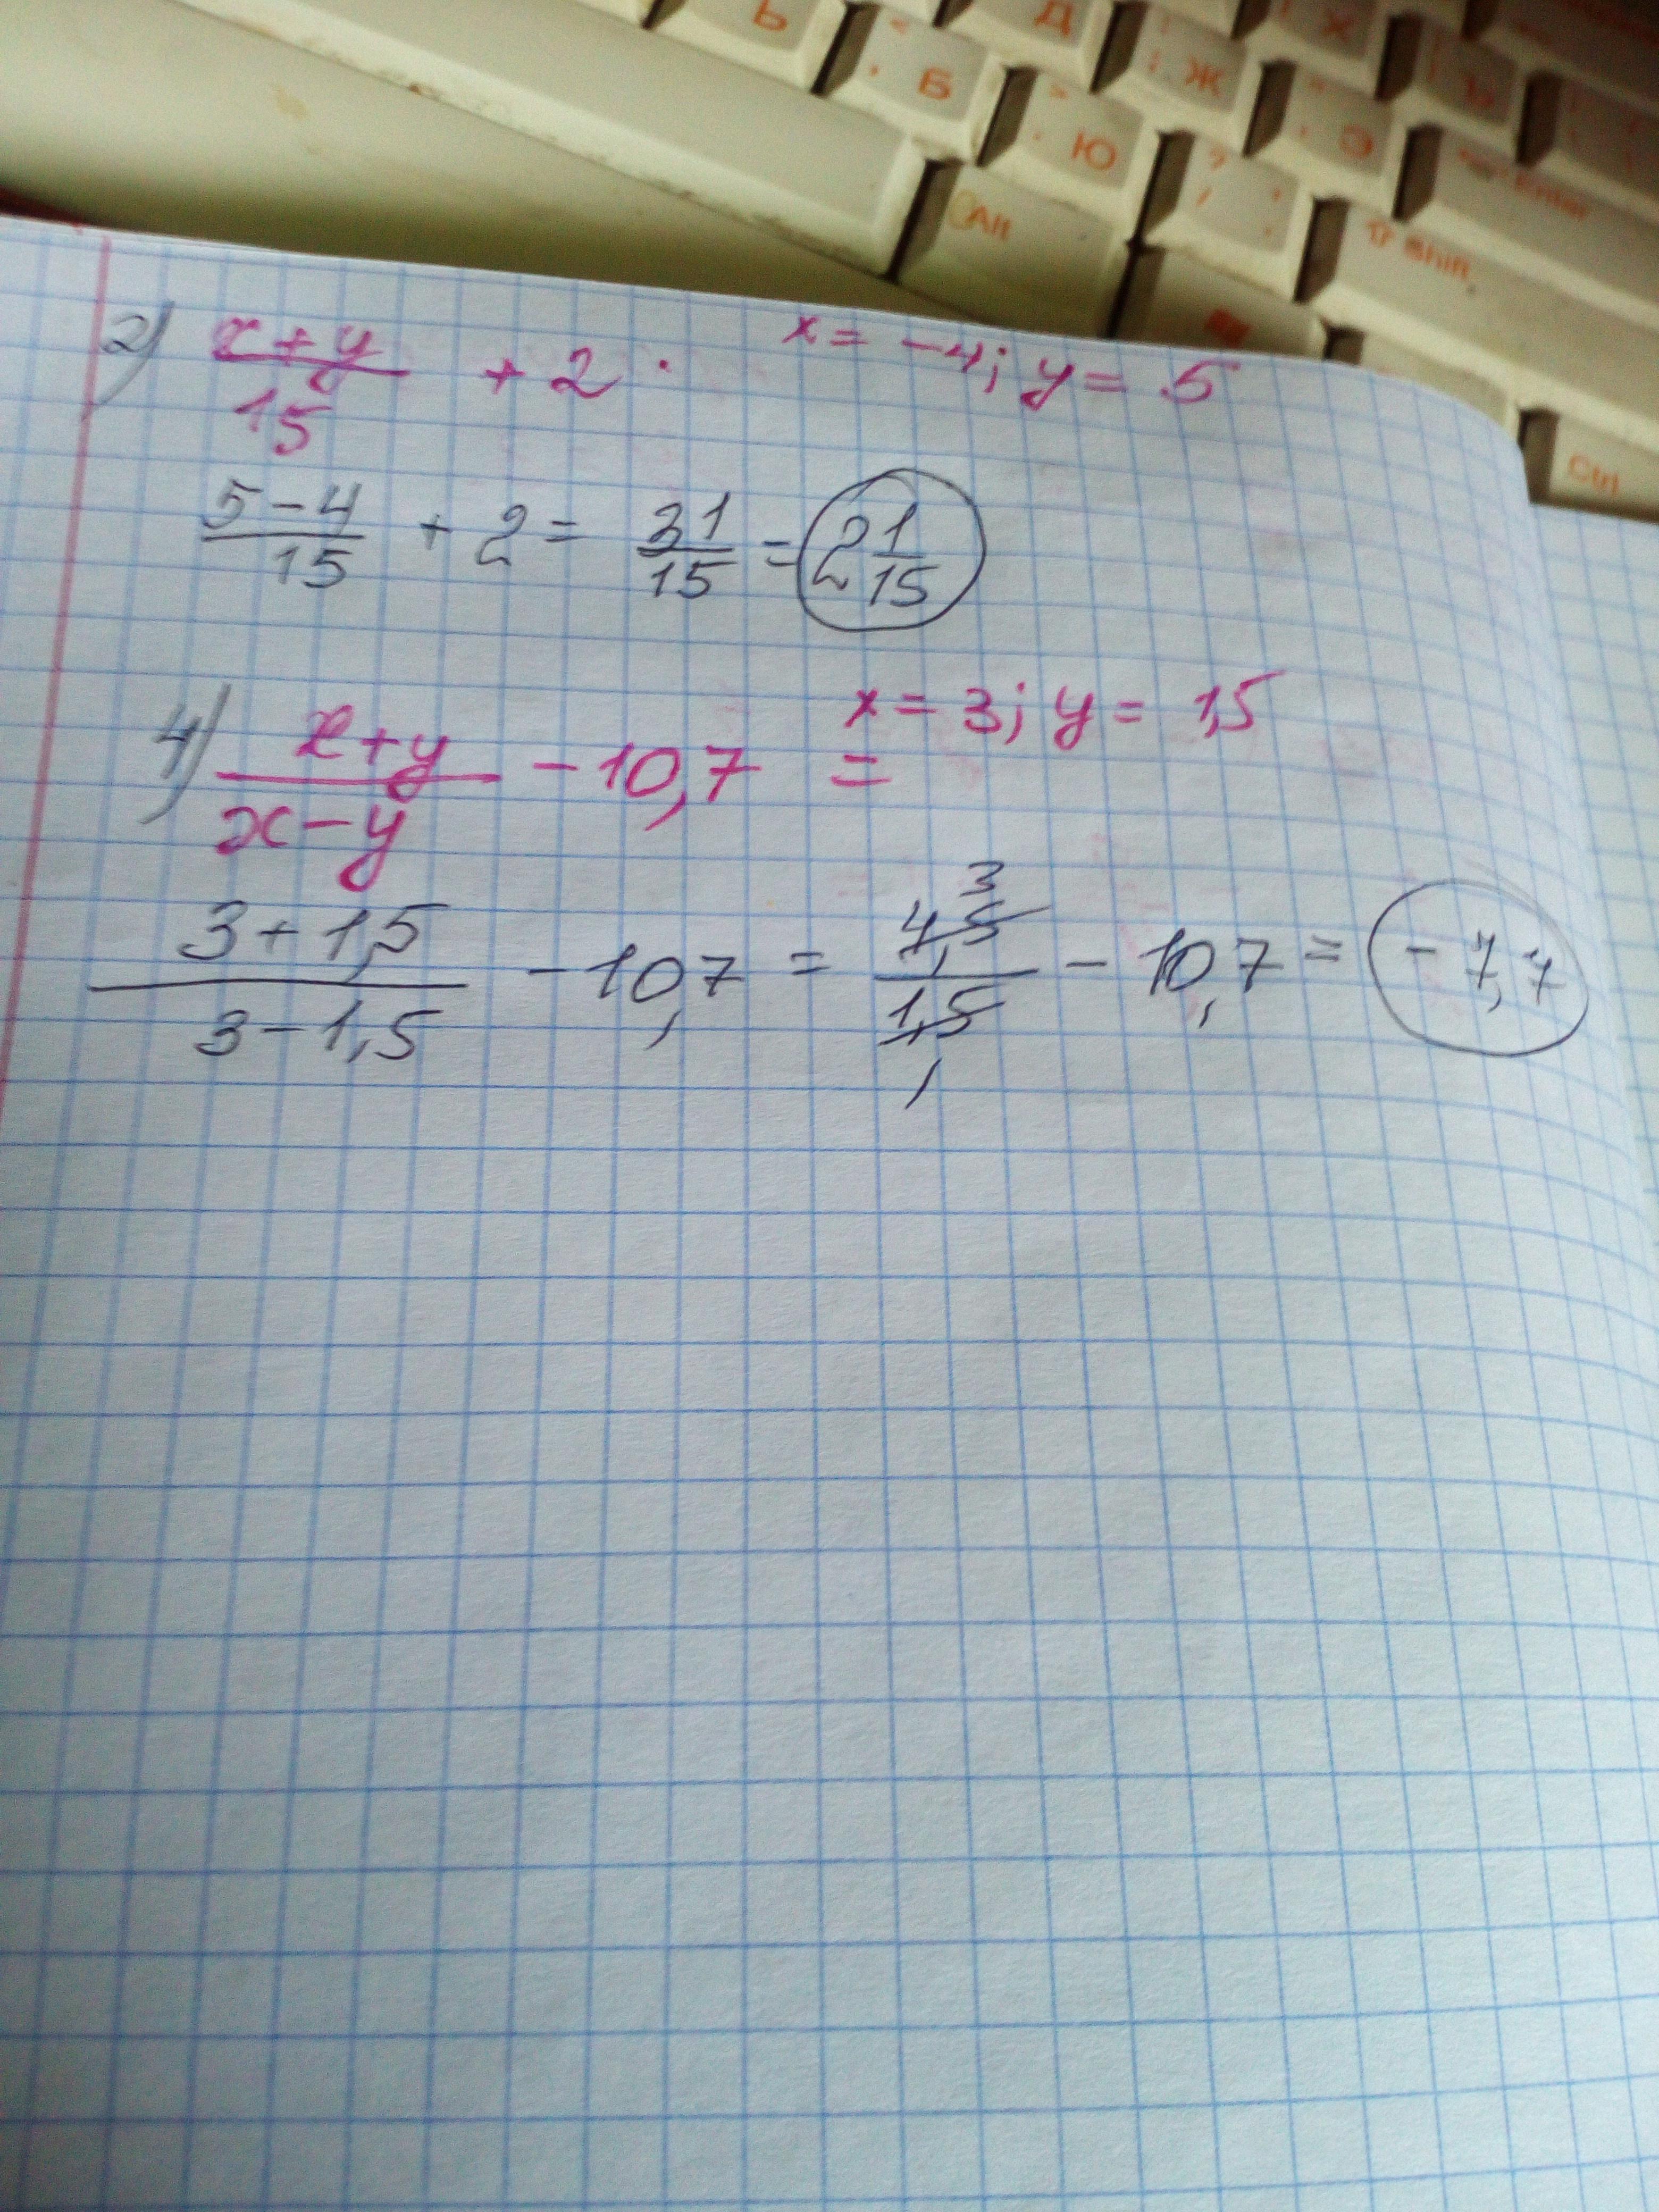 Ь Д Х
< , Б : ; Ж Ъ
> . Ю " ' Э
Alt ? / , . Enter
⇧ Shift
Ctrl
2) x+y/15 + 2 · x = -4; y = 5
5-4/15 + 2 = 31/15 = 2 1/15
4) x+y/x-y - 10,7 = x = 3; y = 1,5
3+1,5/3-1,5 - 10,7 = 4,5 3/1,5 1 - 10,7 = -7,7